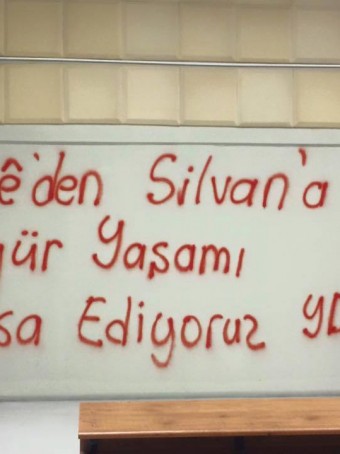 ê'den Silvan'a
ür Yaşamı
sa Ediyoruz YD